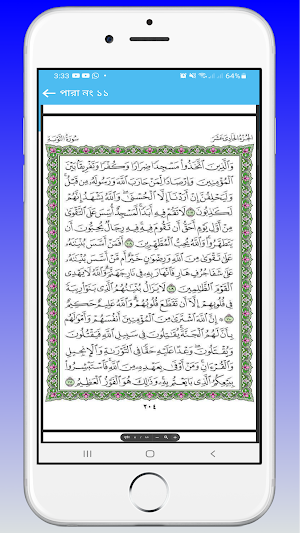 3:33
64%
পারা নং ১১
سورة التوبة
الجزء الحادي عشر
وَالَّذِينَ اتَّخَذُوا مَسْجِدًا ضِرَارًا وَكُفْرًا وَتَفْرِيقًا بَيْنَ
الْمُؤْمِنِينَ وَإِرْصَادًا لِمَنْ حَارَبَ اللَّهَ وَرَسُولَهُ مِن قَبْلُ
وَلَيَحْلِفُنَّ إِنْ أَرَدْنَا إِلَّا الْحُسْنَىٰ وَاللَّهُ يَشْهَدُ إِنَّهُمْ
لَكَاذِبُونَ ١٠٧ لَا تَقُمْ فِيهِ أَبَدًا لَّمَسْجِدٌ أُسِّسَ عَلَى التَّقْوَىٰ
مِنْ أَوَّلِ يَوْمٍ أَحَقُّ أَن تَقُومَ فِيهِ فِيهِ رِجَالٌ يُحِبُّونَ أَن
يَتَطَهَّرُوا وَاللَّهُ يُحِبُّ الْمُطَّهِّرِينَ ١٠٨ أَفَمَنْ أَسَّسَ بُنْيَانَهُ
عَلَىٰ تَقْوَىٰ مِنَ اللَّهِ وَرِضْوَانٍ خَيْرٌ أَم مَّنْ أَسَّسَ بُنْيَانَهُ
عَلَىٰ شَفَا جُرُفٍ هَارٍ فَانْهَارَ بِهِ فِي نَارِ جَهَنَّمَ وَاللَّهُ لَا يَهْدِي
الْقَوْمَ الظَّالِمِينَ ١٠٩ لَا يَزَالُ بُنْيَانُهُمُ الَّذِي بَنَوْا رِيبَةً
فِي قُلُوبِهِمْ إِلَّا أَن تَقَطَّعَ قُلُوبُهُمْ وَاللَّهُ عَلِيمٌ حَكِيمٌ
١١٠ إِنَّ اللَّهَ اشْتَرَىٰ مِنَ الْمُؤْمِنِينَ أَنفُسَهُمْ وَأَمْوَالَهُم
بِأَنَّ لَهُمُ الْجَنَّةَ يُقَاتِلُونَ فِي سَبِيلِ اللَّهِ فَيَقْتُلُونَ
وَيُقْتَلُونَ وَعْدًا عَلَيْهِ حَقًّا فِي التَّوْرَاةِ وَالْإِنجِيلِ
وَالْقُرْآنِ وَمَنْ أَوْفَىٰ بِعَهْدِهِ مِنَ اللَّهِ فَاسْتَبْشِرُوا
بِبَيْعِكُمُ الَّذِي بَايَعْتُم بِهِ وَذَٰلِكَ هُوَ الْفَوْزُ الْعَظِيمُ ١١١
٢٠٤